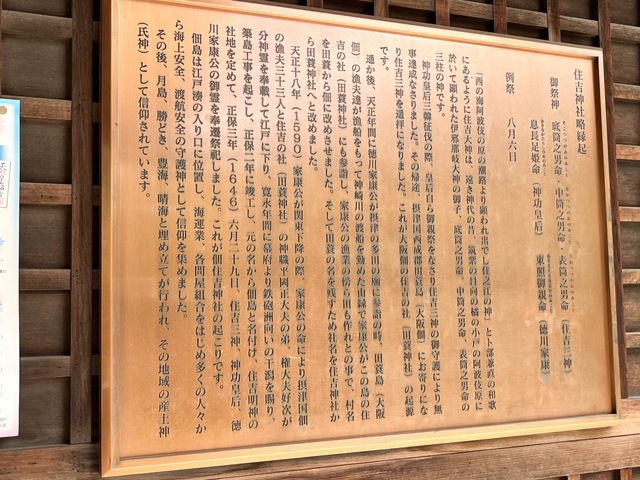 住吉神社略縁起
御祭神 底筒之男命・中筒之男命 表筒之男命(住吉三神)
息長足姫命(神功皇后) 東照御親命(徳川家康)
例祭 八月六日
「西の海阿波伎の原の潮路より顕われ出でし住之江の神」と卜部兼直の和歌
にあるように住吉大神は、遠き神代の昔、筑紫の日向の橘の小戸の阿波伎原に
於いて顕われた伊邪那岐大神の御子、底筒之男命、中筒之男命、表筒之男命の
三柱の神です。
神功皇后三韓征伐の際、皇后自ら御親祭をなさり住吉三神の御守護により無
事達成なさりました。その帰途、摂津国西成郡田蓑島(大阪佃)にお寄りにな
り住吉三神を遥拝になりました。これが大阪佃の住吉の社(田蓑神社)の起源
です。
遥か後、天正年間に徳川家康公が摂津の多田の廟に参詣の時、田蓑島(大阪
佃)の漁夫達が漁船をもって神崎川の渡船を勤めた由縁で家康公がこの島の住
吉の社(田蓑神社)にも参詣し、家康公の漁業の傍ら田も作れとの事で、村名
を田蓑から佃に改めさせました。そして田蓑の名を残すため社名を住吉神社か
ら田蓑神社へと改めました。
天正十八年(1590)家康公が関東下降の際、家康公の命により摂津国佃
の漁夫三十三人と住吉の社(田蓑神社)の神職平岡正大夫の弟、権大夫好次が
分神霊を奉戴して江戸に下り、寛永年間に幕府より鉄砲洲向いの干潟を賜り、
築島工事を起こし、正保二年に竣工し、元の名から佃島と名付け、住吉明神の
社地を定めて、正保三年(1646)六月二十九日、住吉三神、神功皇后、徳
川家康公の御霊を奉遷祭祀しました。これが佃住吉神社の起こりです。
佃島は江戸湊の入り口に位置し、海運業、各問屋組合をはじめ多くの人々か
ら海上安全、渡航安全の守護神として信仰を集めました。
その後、月島、勝どき、豊海、晴海と埋め立てが行われ、その地域の産土神
(氏神)として信仰されています。